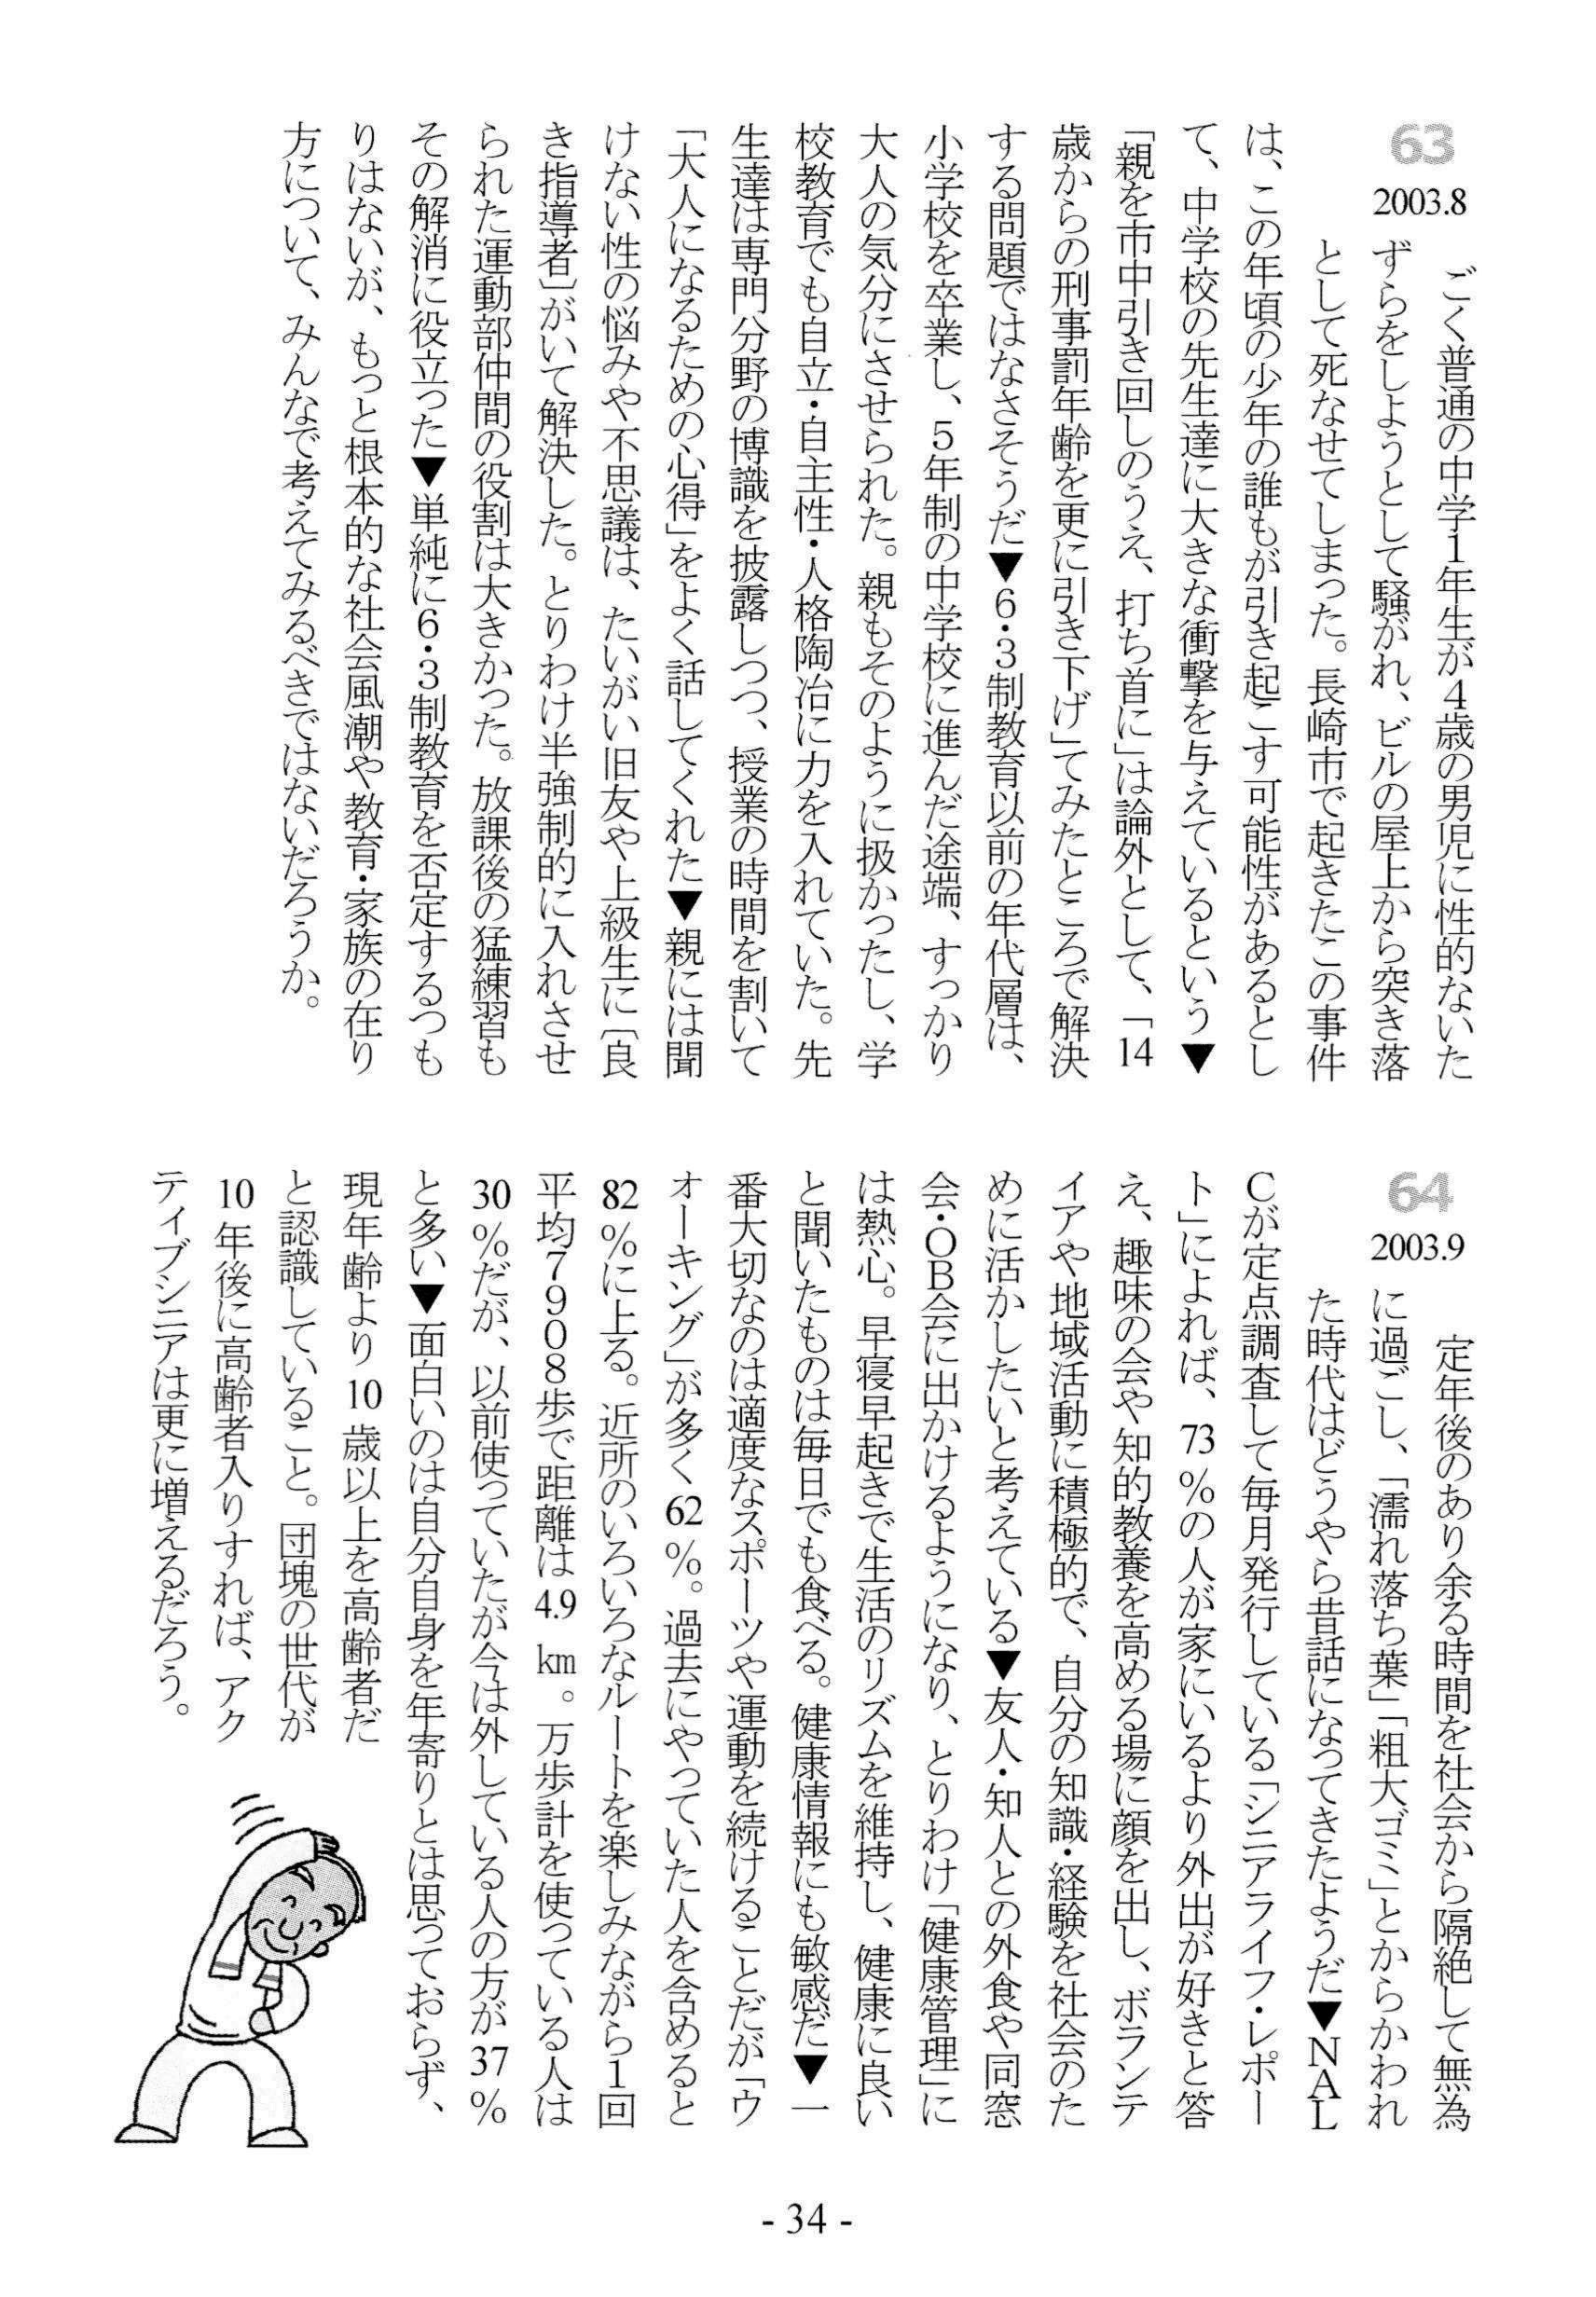 63
2003.8
ごく普通の中学1年生が4歳の男児に性的ないた
ずらをしようとして騒がれ、ビルの屋上から突き落
として死なせてしまった。長崎市で起きたこの事件
は、この年頃の少年の誰もが引き起こす可能性があるとし
て、中学校の先生達に大きな衝撃を与えているという▼
「親を市中引き回しのうえ、打ち首に」は論外として、「14
歳からの刑事罰年齢を更に引き下げ」てみたところで解決
する問題ではなさそうだ▼6・3制教育以前の年代層は、
小学校を卒業し、5年制の中学校に進んだ途端、すっかり
大人の気分にさせられた。親もそのように扱かったし、学
校教育でも自立・自主性・人格陶冶に力を入れていた。先
生達は専門分野の博識を披露しつつ、授業の時間を割いて
「大人になるための心得」をよく話してくれた▼親には聞
けない性の悩みや不思議は、たいがい旧友や上級生に〔良
き指導者〕がいて解決した。とりわけ半強制的に入れさせ
られた運動部仲間の役割は大きかった。放課後の猛練習も
その解消に役立った▼単純に6・3制教育を否定するつも
りはないが、もっと根本的な社会風潮や教育・家族の在り
方について、みんなで考えてみるべきではないだろうか。
64
2003.9
定年後のあり余る時間を社会から隔絶して無為
に過ごし、「濡れ落ち葉」「粗大ゴミ」とからかわれ
た時代はどうやら昔話になってきたようだ▼NAL
Cが定点調査して毎月発行している「シニアライフ・レポー
ト」によれば、73%の人が家にいるより外出が好きと答
え、趣味の会や知的教養を高める場に顔を出し、ボランテ
ィアや地域活動に積極的で、自分の知識・経験を社会のた
めに活かしたいと考えている▼友人・知人との外食や同窓
会・OB会に出かけるようになり、とりわけ「健康管理」に
は熱心。早寝早起きで生活のリズムを維持し、健康に良い
と聞いたものは毎日でも食べる。健康情報にも敏感だ▼一
番大切なのは適度なスポーツや運動を続けることだが「ウ
オーキング」が多く62%。過去にやっていた人を含めると
82%に上る。近所のいろいろなルートを楽しみながら1回
平均7908歩で距離は4.9km。万歩計を使っている人は
30%だが、以前使っていたが今は外している人の方が37%
と多い▼面白いのは自分自身を年寄りとは思っておらず、
現年齢より10歳以上を高齢者だ
と認識していること。団塊の世代が
10年後に高齢者入りすれば、アク
ティブシニアは更に増えるだろう。
- 34 -